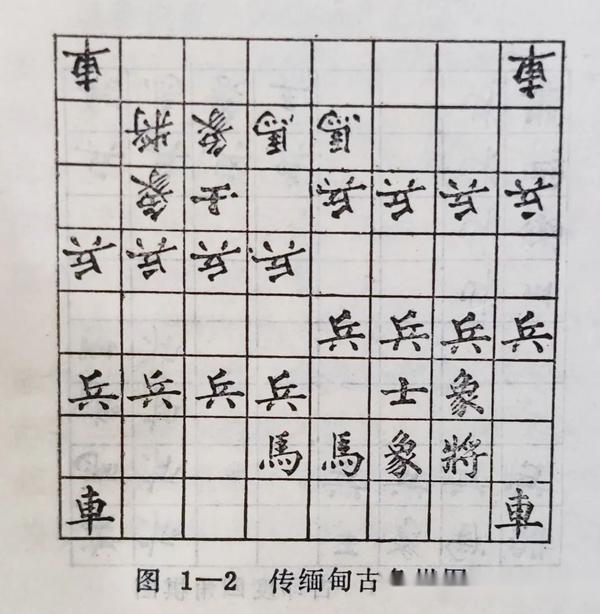 車 車
將 象 馬 馬
象 士 兵 兵 兵 兵
兵 兵 兵 兵
兵 兵 兵 兵
兵 兵 兵 兵 士 象
馬 馬 象 將
車 車
图 1—2 传缅甸古